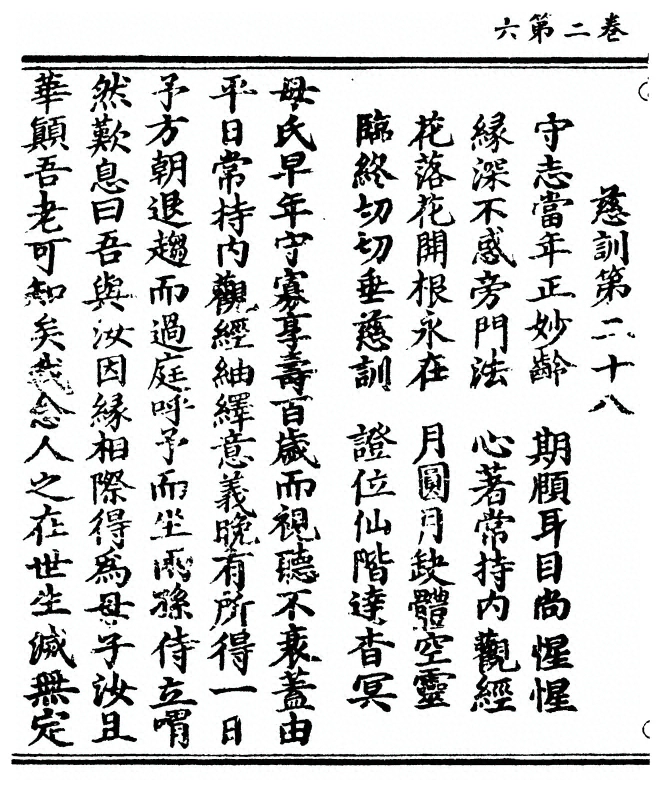 卷二第六
慈訓第二十八
守志當年正妙齡　期頤耳目尚惺惺
緣深不惑旁門法　心著常持內觀經
花落花開根永在　月圓月缺體空靈
臨終切切垂慈訓　證位仙階達杳冥
母氏早年守寡享壽百歲而視聽不衰蓋由
平日常持內觀經紬繹意義晚有所得一日
予方朝退趨而過庭呼予而坐兩孫侍立喟
然歎息曰吾與汝因緣相際得為母子汝且
華顛吾老可知矣我念人之在世生滅無定